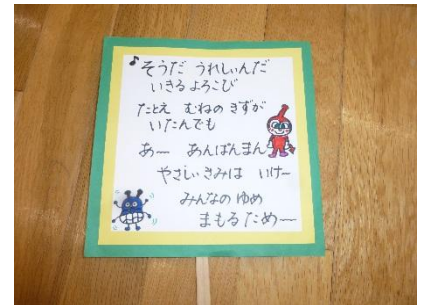 ♪そうだ うれしいんだ
いきる よろこび
たとえ むねの きずが
いたんでも
あ〜 あんぱんまん
やさしい きみは いけー
みんなの ゆめ
まもる ため〜